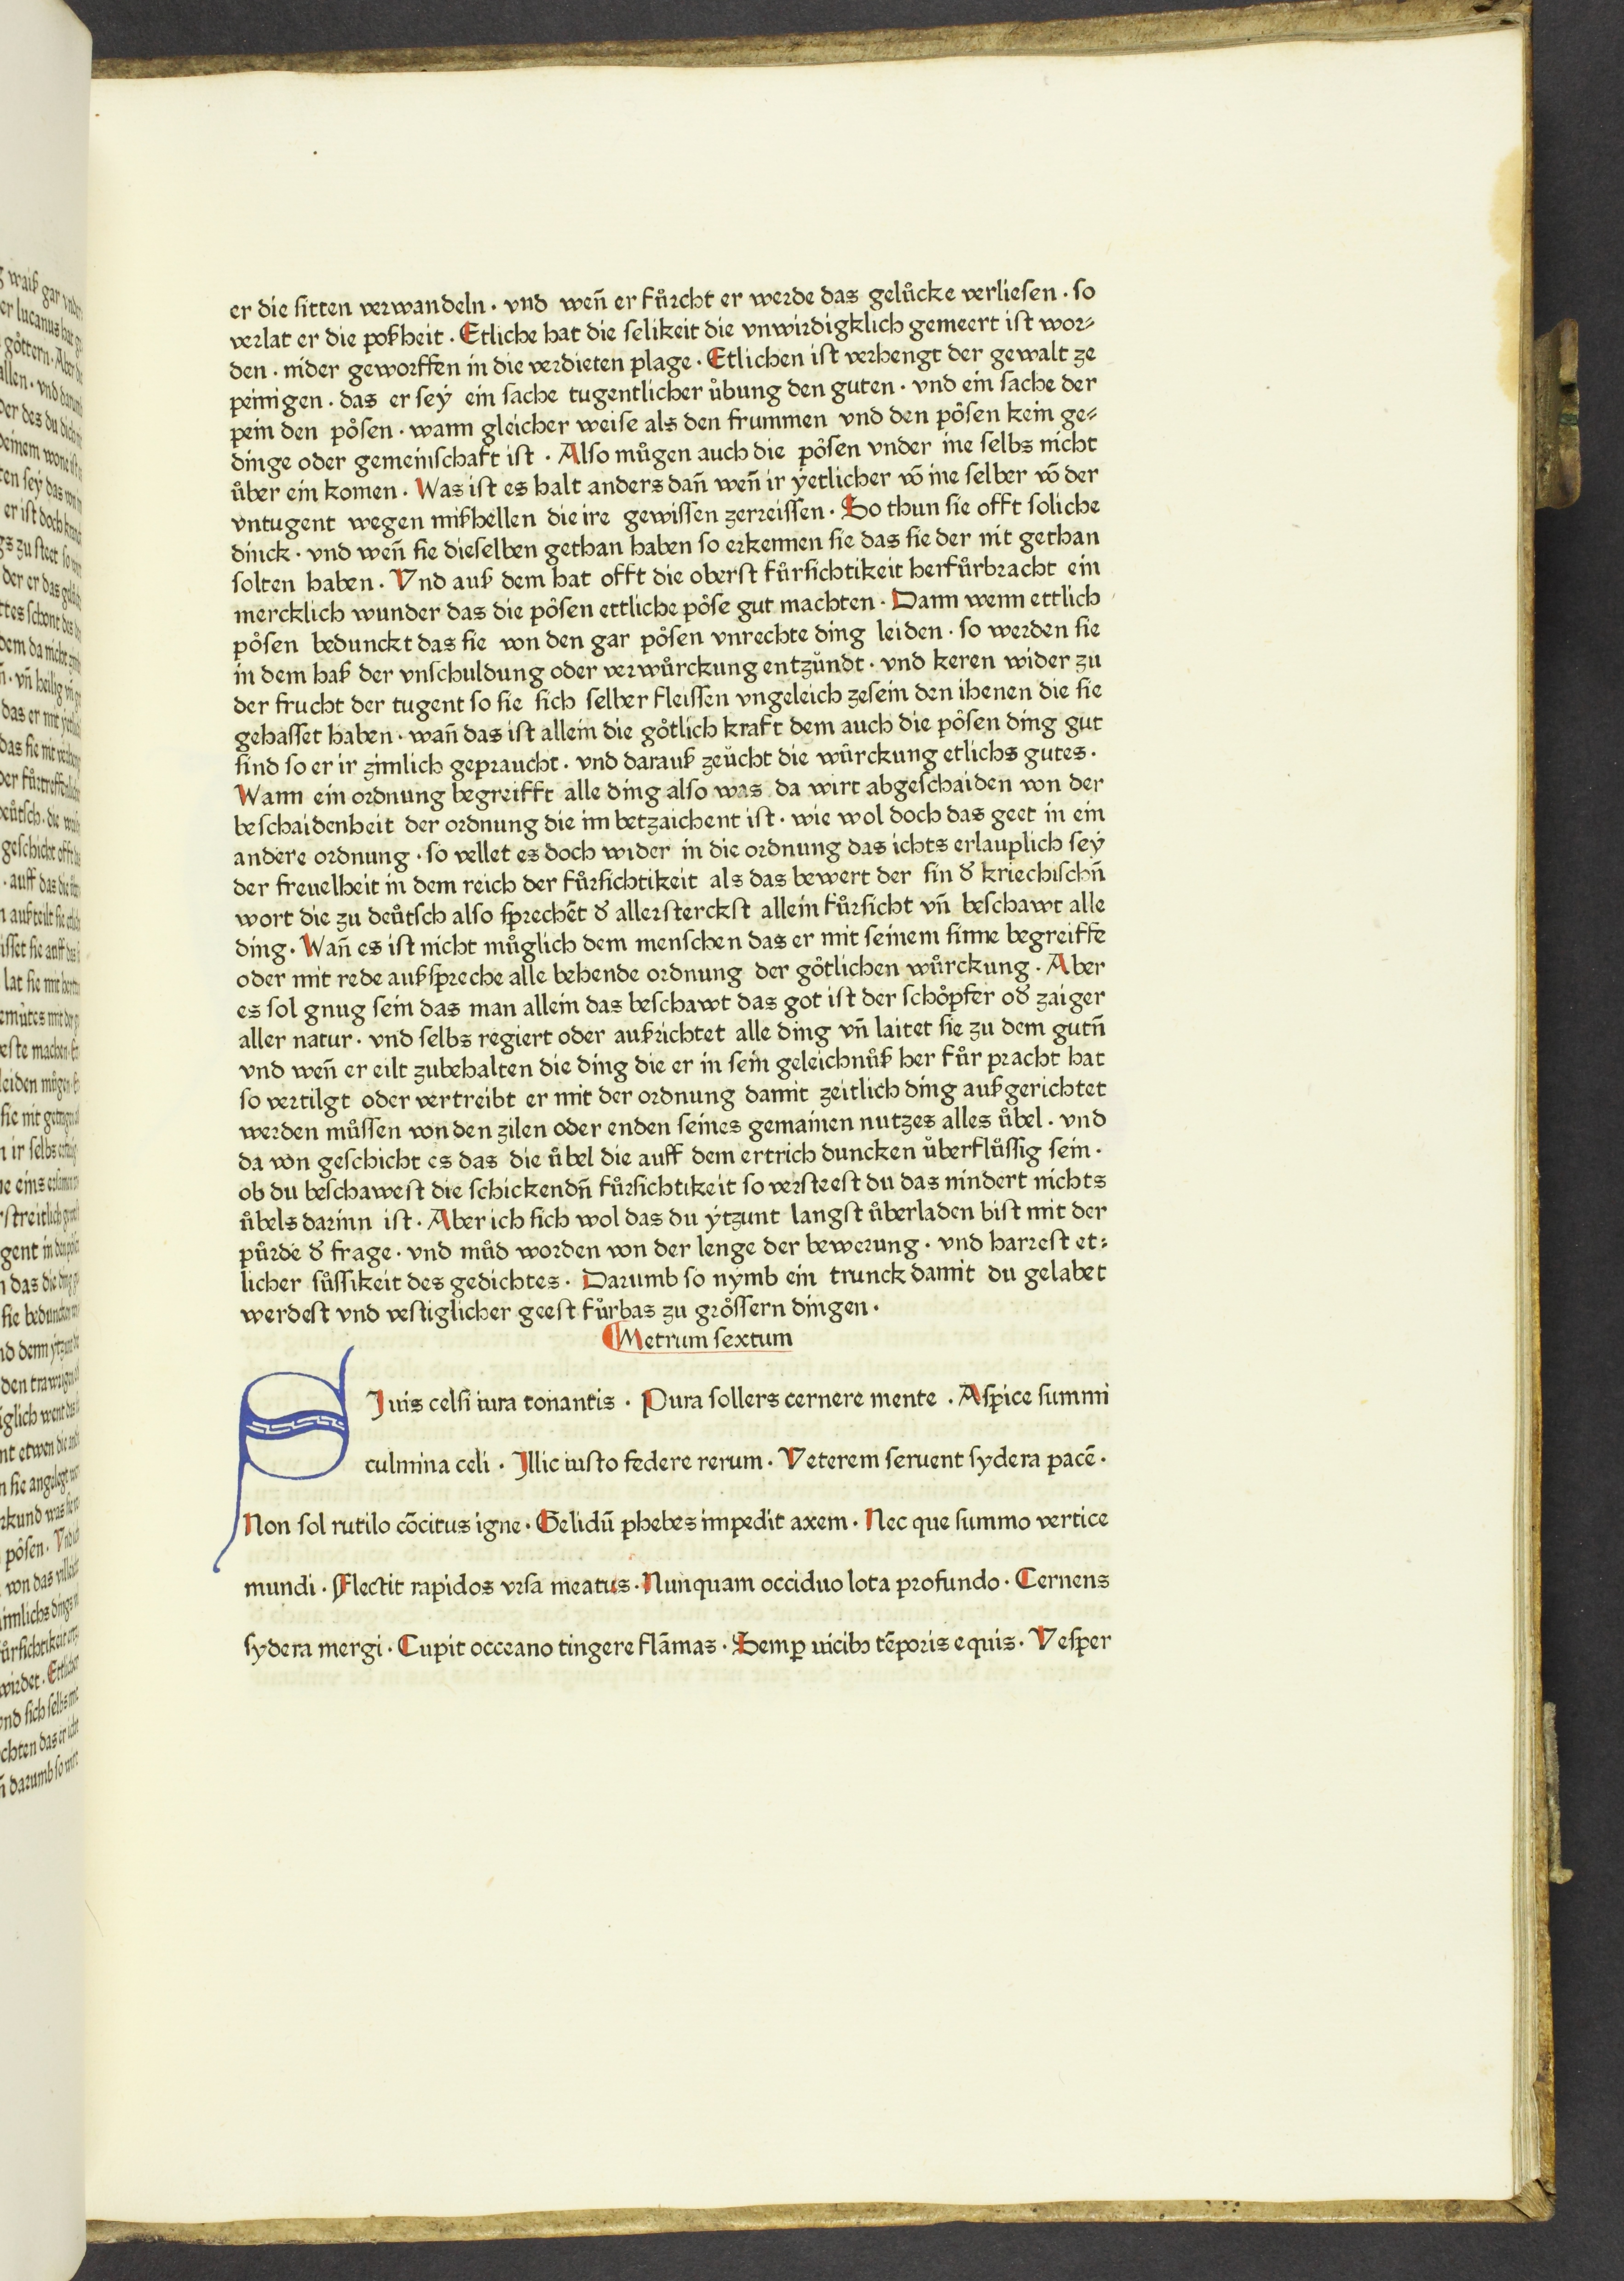 er die sitten verwandeln · vnd weñ er fůrcht er werde das gelůcke verliesen · so
verlat er die poßheit · Etliche hat die selikeit die vnwirdigklich gemeert ist wor⸗
den · nider geworffen in die verdieten plage · Etlichen ist verhengt der gewalt ze
peinigen · das er seẏ ein sache tugentlicher ůbung den guten · vnd ein sache der
pein den pösen · wann gleicher weise als den frummen vnd den pösen kein ge⸗
dinge oder gemeinschaft ist · Also můgen auch die pösen vnder ine selbs nicht
ůber ein komen · Was ist es halt anders dañ weñ ir ẏetlicher vō ine selber vō der
vntugent wegen mißhellen die ire gewissen zerreissen · So thun sie offt soliche
dinck · vnd weñ sie dieselben gethan haben so erkennen sie das sie der nit gethan
solten haben · Vnd auß dem hat offt die oberst fůrsichtikeit herfůrbracht ein
mercklich wunder das die pösen ettliche pöse gut machten · Dann wenn ettlich
pösen bedunckt das sie von den gar pösen vnrechte ding leiden · so werden sie
in dem haß der vnschuldung oder verwůrckung entzůndt · vnd keren wider zu
der frucht der tugent so sie sich selber fleissen vngeleich zesein den ihenen die sie
gehasset haben · wañ das ist allein die götlich kraft dem auch die pösen ding gut
sind so er ir zimlich gepraucht · vnd darauß zeůcht die wůrckung etlichs gutes ·
Wann ein ordnung begreifft alle ding also was da wirt abgeschaiden von der
beschaidenheit der ordnung die im betzaichent ist · wie wol doch das geet in ein
andere ordnung · so vellet es doch wider in die ordnung das ichts erlauplich seẏ
der freuelheit in dem reich der fůrsichtikeit als das bewert der sin đ kriechischñ
wort die zu deůtsch also sprechēt đ allersterckst allein fůrsicht vñ beschawt alle
ding · Wañ es ist nicht můglich dem menschen das er mit seinem sinne begreiffe
oder mit rede außspreche alle behende ordnung der götlichen wůrckung · Aber
es sol gnug sein das man allein das beschawt das got ist der schöpfer ođ zaiger
aller natur · vnd selbs regiert oder außrichtet alle ding vñ laitet sie zu dem gutñ
vnd weñ er eilt zubehalten die ding die er in sein geleichnůß her fůr pracht hat
so vertilgt oder vertreibt er mit der ordnung damit zeitlich ding außgerichtet
werden můssen von den zilen oder enden seines gemainen nutzes alles ůbel · vnd
da von geschicht es das die ůbel die auff dem ertrich duncken ůberflůssig sein ·
ob du beschawest die schickendñ fůrsichtikeit so versteest du das nindert nichts
ůbels darinn ist · Aber ich sich wol das du ẏtzunt langst ůberladen bist mit der
půrde đ frage · vnd můd worden von der lenge der bewerung · vnd harrest et⸗
licher sůssikeit des gedichtes · Darumb so nẏmb ein trunck damit du gelabet
werdest vnd vestiglicher geest fůrbas zu grössern dingen ·
Metrum sextum
SJ uis celsi iura tonantis · Pura sollers cernere mente · Aspice summi
culmina celi · Jllic iusto federe rerum · Veterem seruent sydera pacē ·
Non sol rutilo cōcitus igne · Gelidū phebes impedit axem · Nec que summo vertice
mundi · Flectit rapidos vrsa meatus · Nunquam occiduo lota profundo · Cernens
sydera mergi · Cupit occeano tingere flāmas · Semꝑ uicibꝫ tēporis equis · Vesper